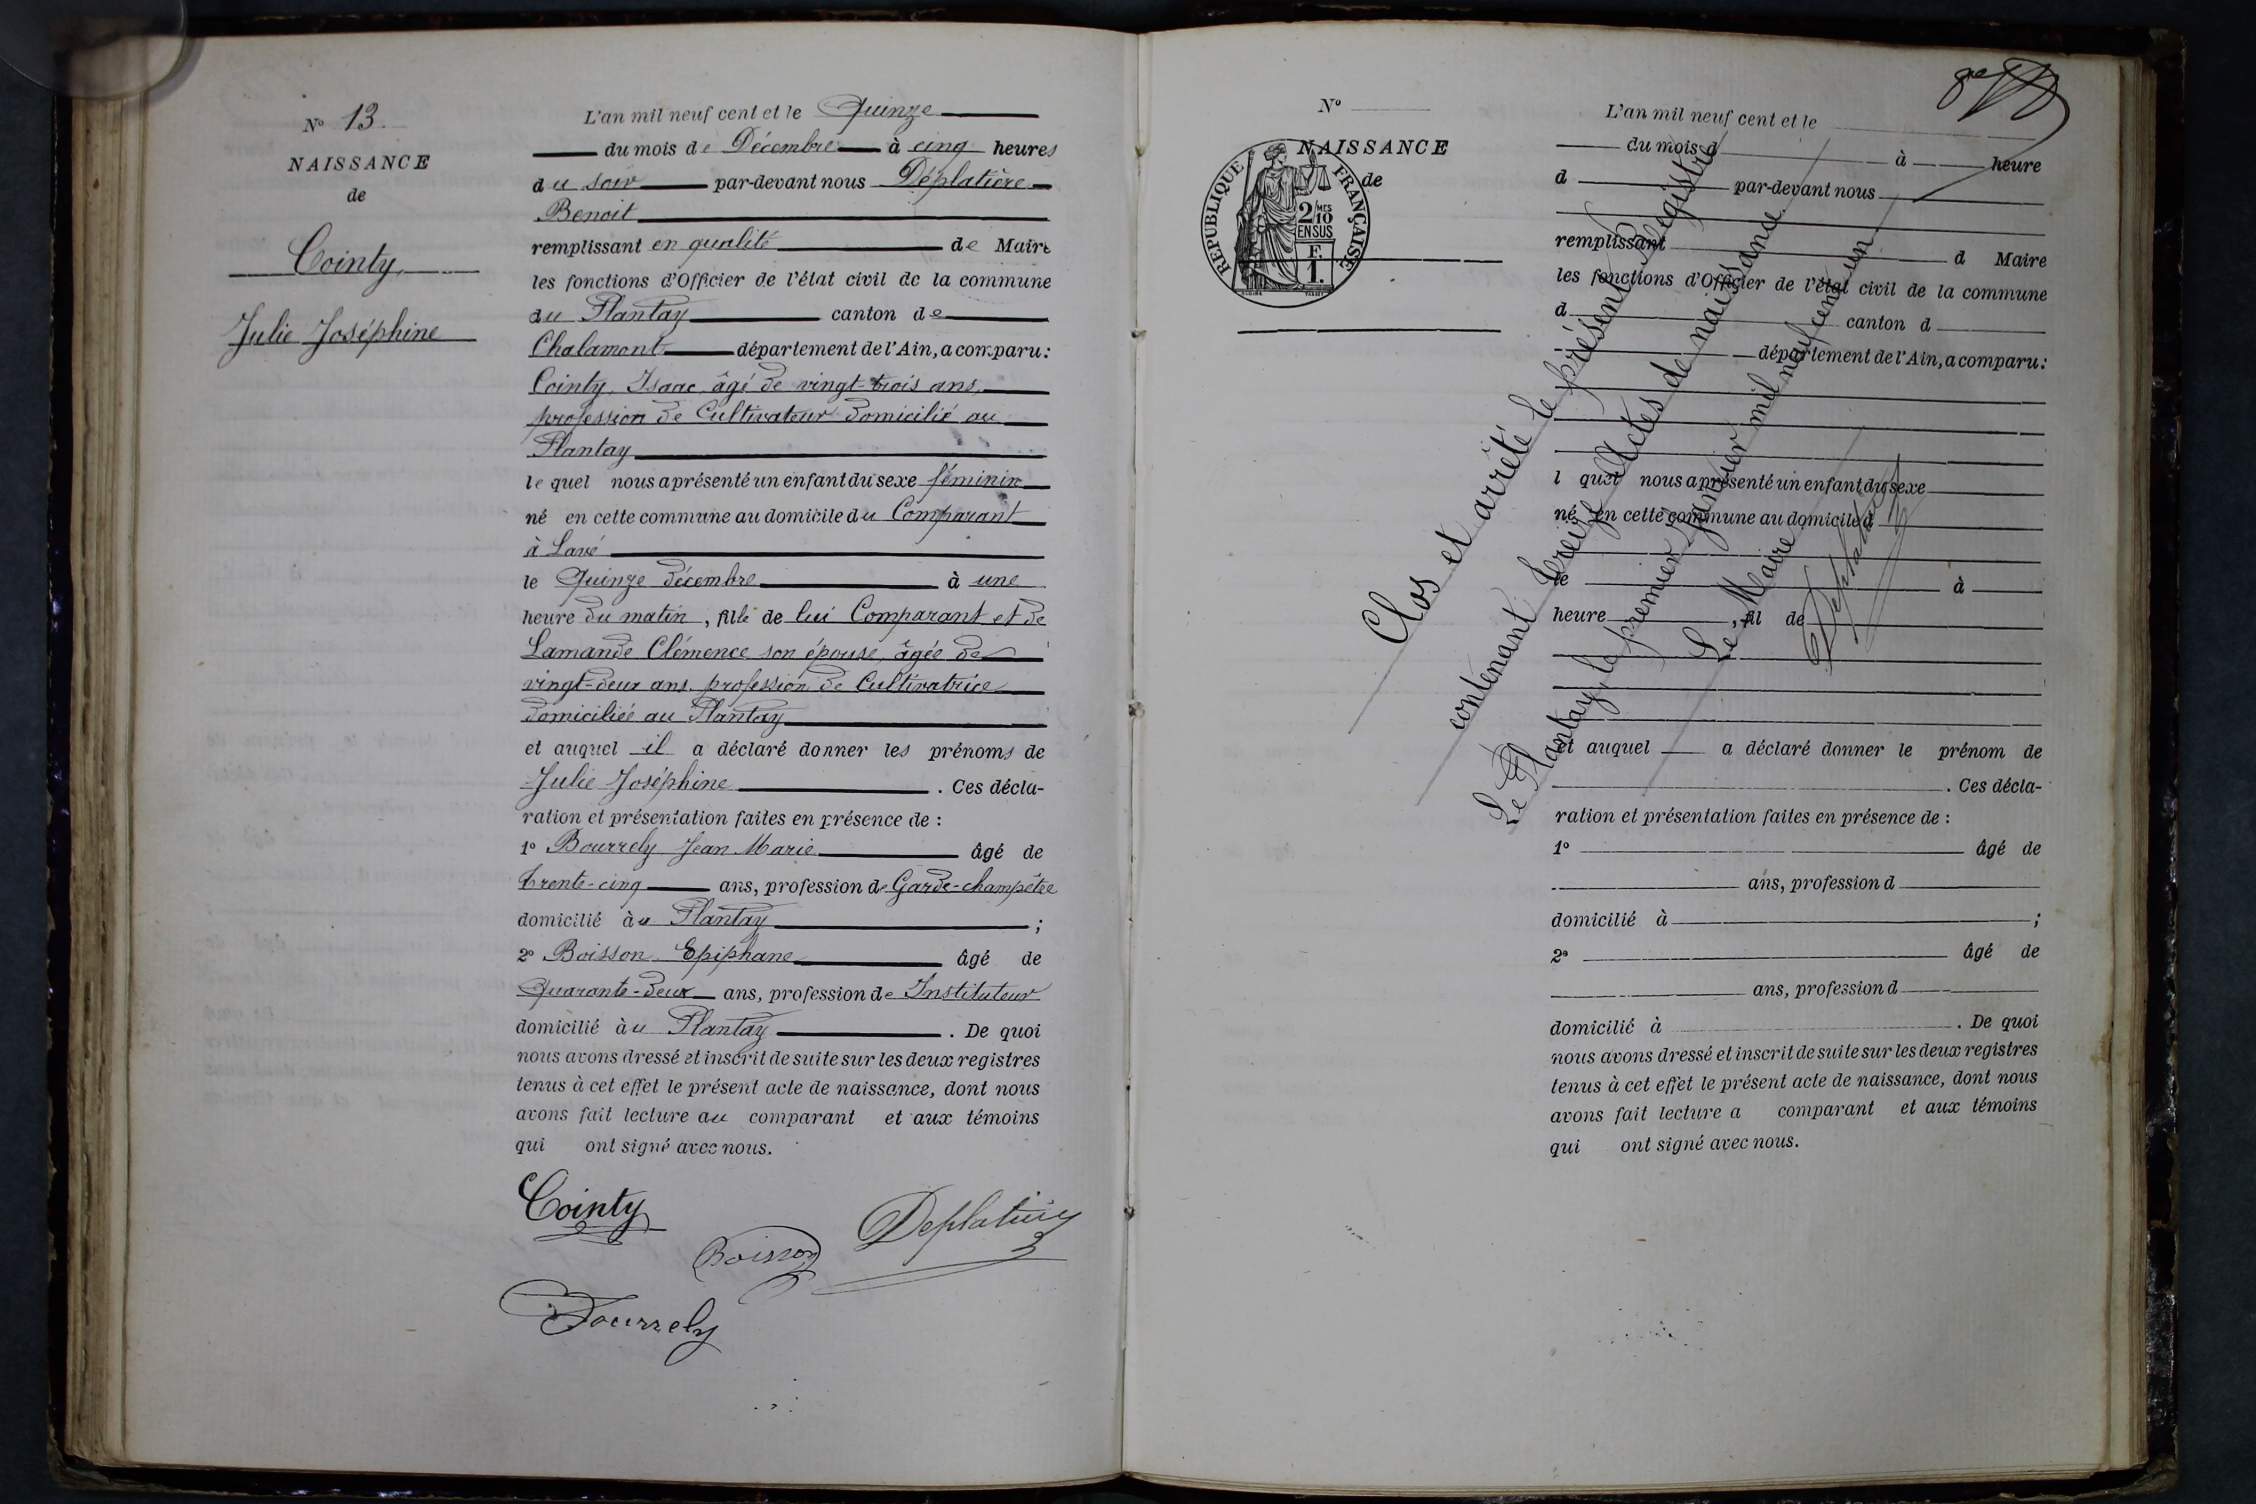 N° 13
NAISSANCE
de
Cointy
Julie Joséphine
L'an mil neuf cent et le Quinze
du mois de Décembre à cinq heures
du soir par-devant nous Déplatière
Benoit
remplissant en qualité de Maire
les fonctions d'Officier de l'état civil de la commune
du Plantay canton de
Chalamont département de l'Ain, a comparu:
Cointy Isaac âgé de vingt-trois ans,
profession de Cultivateur domicilié au
Plantay
le quel nous a présenté un enfant du sexe féminin
né en cette commune au domicile du Comparant
à Lavé
le Quinze décembre à une
heure du matin, fille de lui Comparant et de
Lamande Clémence son épouse, âgée de
vingt-deux ans profession de Cultivatrice
domiciliée au Plantay
et auquel il a déclaré donner les prénoms de
Julie Joséphine. Ces décla-
ration et présentation faites en présence de :
1° Bourrely Jean Marie âgé de
trente-cinq ans, profession de Garde-champêtre
domicilié au Plantay ;
2° Boisson Epiphane âgé de
Quarante-deux ans, profession de Instituteur
domicilié au Plantay. De quoi
nous avons dressé et inscrit de suite sur les deux registres
tenus à cet effet le présent acte de naissance, dont nous
avons fait lecture au comparant et aux témoins
qui ont signé avec nous.
Cointy
Boisson
Deplatière
Bourrely
N°
NAISSANCE
de
RÉPUBLIQUE FRANÇAISE
2/10MES
EN SUS
F.
1.
8e
L'an mil neuf cent et le
du mois d à heure
d par-devant nous
remplissant d Maire
les fonctions d'Officier de l'état civil de la commune
d canton d
département de l'Ain, a comparu:
l quel nous a présenté un enfant du sexe
né en cette commune au domicile d
le à
heure , fil de
et auquel a déclaré donner le prénom de
. Ces décla-
ration et présentation faites en présence de :
1° âgé de
ans, profession d
domicilié à ;
2° âgé de
ans, profession d
domicilié à . De quoi
nous avons dressé et inscrit de suite sur les deux registres
tenus à cet effet le présent acte de naissance, dont nous
avons fait lecture a comparant et aux témoins
qui ont signé avec nous.
Clos et arrêté le présent Registre
contenant treize Actes de naissance
Le Plantay, le premier Janvier mil neuf cent un
Le Maire
Deplatière